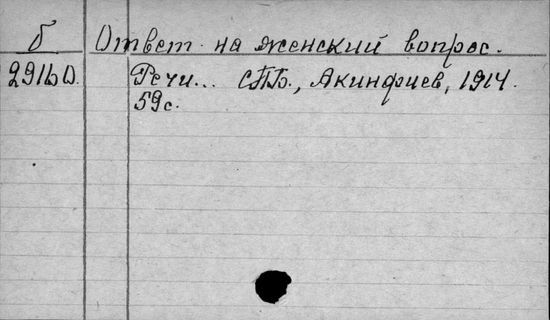 б Ответ на женский вопрос.
Речи... СПБ., Акинфиев, 1914.
59с.